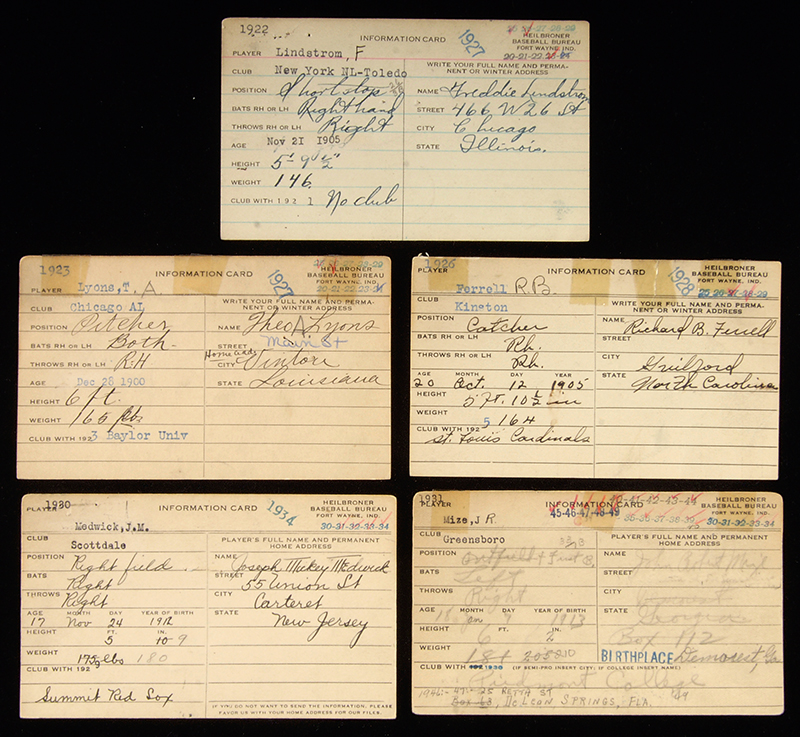 1922
INFORMATION CARD
1927
25-26-27-28-29
HEILBRONER
BASEBALL BUREAU
FORT WAYNE, IND.
20-21-22-23-24
PLAYER Lindstrom, F
CLUB New York NL-Toledo
POSITION Shortstop
BATS RH OR LH Right hand
THROWS RH OR LH Right
AGE Nov 21 1905
HEIGHT 5' 9 1/2"
WEIGHT 146.
CLUB WITH 192 1 No club
WRITE YOUR FULL NAME AND PERMA-
NENT OR WINTER ADDRESS
NAME Freddie Lindstrom
STREET 466 W 26 St
CITY Chicago
STATE Illinois.
1923
INFORMATION CARD
1927
25-26-27-28-29
HEILBRONER
BASEBALL BUREAU
FORT WAYNE, IND.
20-21-22-23-24
PLAYER Lyons, T. A
CLUB Chicago AL
POSITION Pitcher
BATS RH OR LH Both
THROWS RH OR LH R.H
AGE Dec 28 1900
HEIGHT 6 ft.
WEIGHT 165 lbs
CLUB WITH 192 3 Baylor Univ
WRITE YOUR FULL NAME AND PERMA-
NENT OR WINTER ADDRESS
NAME Theo A Lyons
STREET Main St
Home address
CITY Vinton
STATE Louisiana
1926
INFORMATION CARD
1928
HEILBRONER
BASEBALL BUREAU
FORT WAYNE, IND.
25-26-27-28-29
PLAYER Ferrell R.B.
CLUB Kinston
POSITION Catcher
BATS RH OR LH Rh.
THROWS RH OR LH Rh.
AGE MONTH DAY YEAR
20 Oct. 12 1905
HEIGHT 5 Ft. 10 1/2 in
WEIGHT 164
CLUB WITH 192 5
St. Louis Cardinals
WRITE YOUR FULL NAME AND PERMA-
NENT OR WINTER ADDRESS
NAME Richard B. Ferrell
STREET
CITY Guilford
STATE North Carolina
1930
INFORMATION CARD
1934
HEILBRONER
BASEBALL BUREAU
FORT WAYNE, IND.
30-31-32-33-34
PLAYER
Medwick, J.M.
CLUB Scottdale
POSITION Right field
BATS Right
THROWS Right
AGE MONTH DAY YEAR OF BIRTH
17 Nov 24 1912
HEIGHT FT. IN.
5 10-9
WEIGHT 175 lbs 180
CLUB WITH 192
Summit Red Sox
PLAYER'S FULL NAME AND PERMANENT
HOME ADDRESS
NAME Joseph Mickey Medwick
STREET 55 Union St
CITY Carteret
STATE New Jersey
IF YOU DO NOT WANT TO SEND THE INFORMATION, PLEASE
FAVOR US WITH YOUR HOME ADDRESS FOR OUR FILES.
1931
INFORMATION CARD
40-41-42-43-44
45-46-47-48-49
35-36-37-38-39
HEILBRONER
BASEBALL BUREAU
FORT WAYNE, IND.
30-31-32-33-34
PLAYER
Mize, J R.
CLUB Greensboro
POSITION Outfield + First B.
BATS Left
THROWS Right
AGE MONTH DAY YEAR OF BIRTH
Jan 7 1913
HEIGHT FT. IN.
6 2
WEIGHT 184 205 210
CLUB WITH 192 1930 (IF SEMI-PRO INSERT CITY, IF COLLEGE INSERT NAME)
Piedmont College
PLAYER'S FULL NAME AND PERMANENT
HOME ADDRESS
NAME
STREET
CITY
STATE Georgia
Box 112
BIRTHPLACE Demorest, Ga
1946-47- 25 ST
Box 63, DE LEON SPRINGS, FLA.